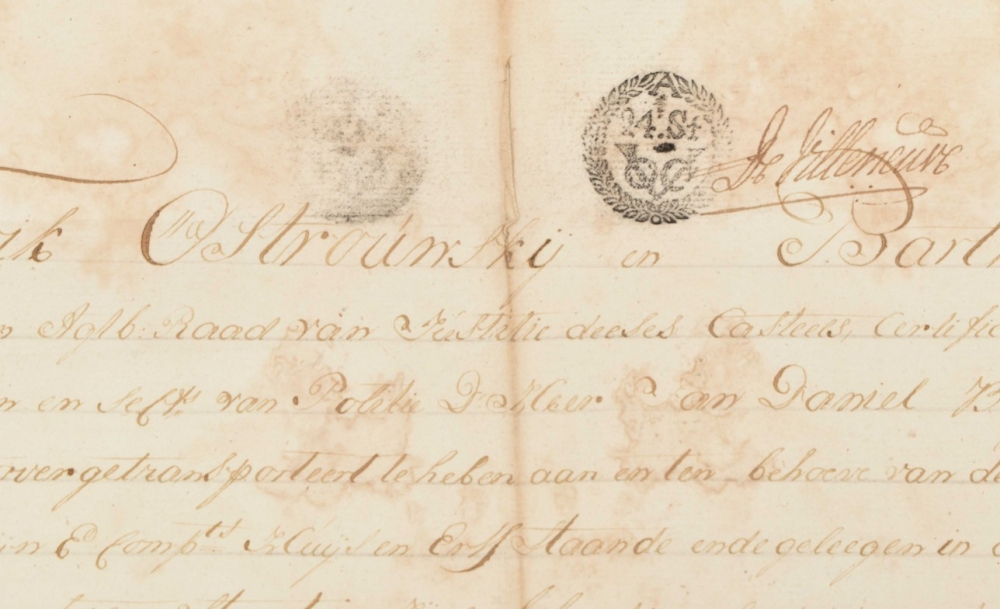 A
24. St
De Villeneuve
Ostrouwskij en Bart
Aglb: Raad van Justitie deeses Casteels, Certific
en van Politie D' Heer Jan Daniel
over getransporteert te heben aan en ten behoeve van de
E Comp:ts Huijs en Erff staande ende geleegen in